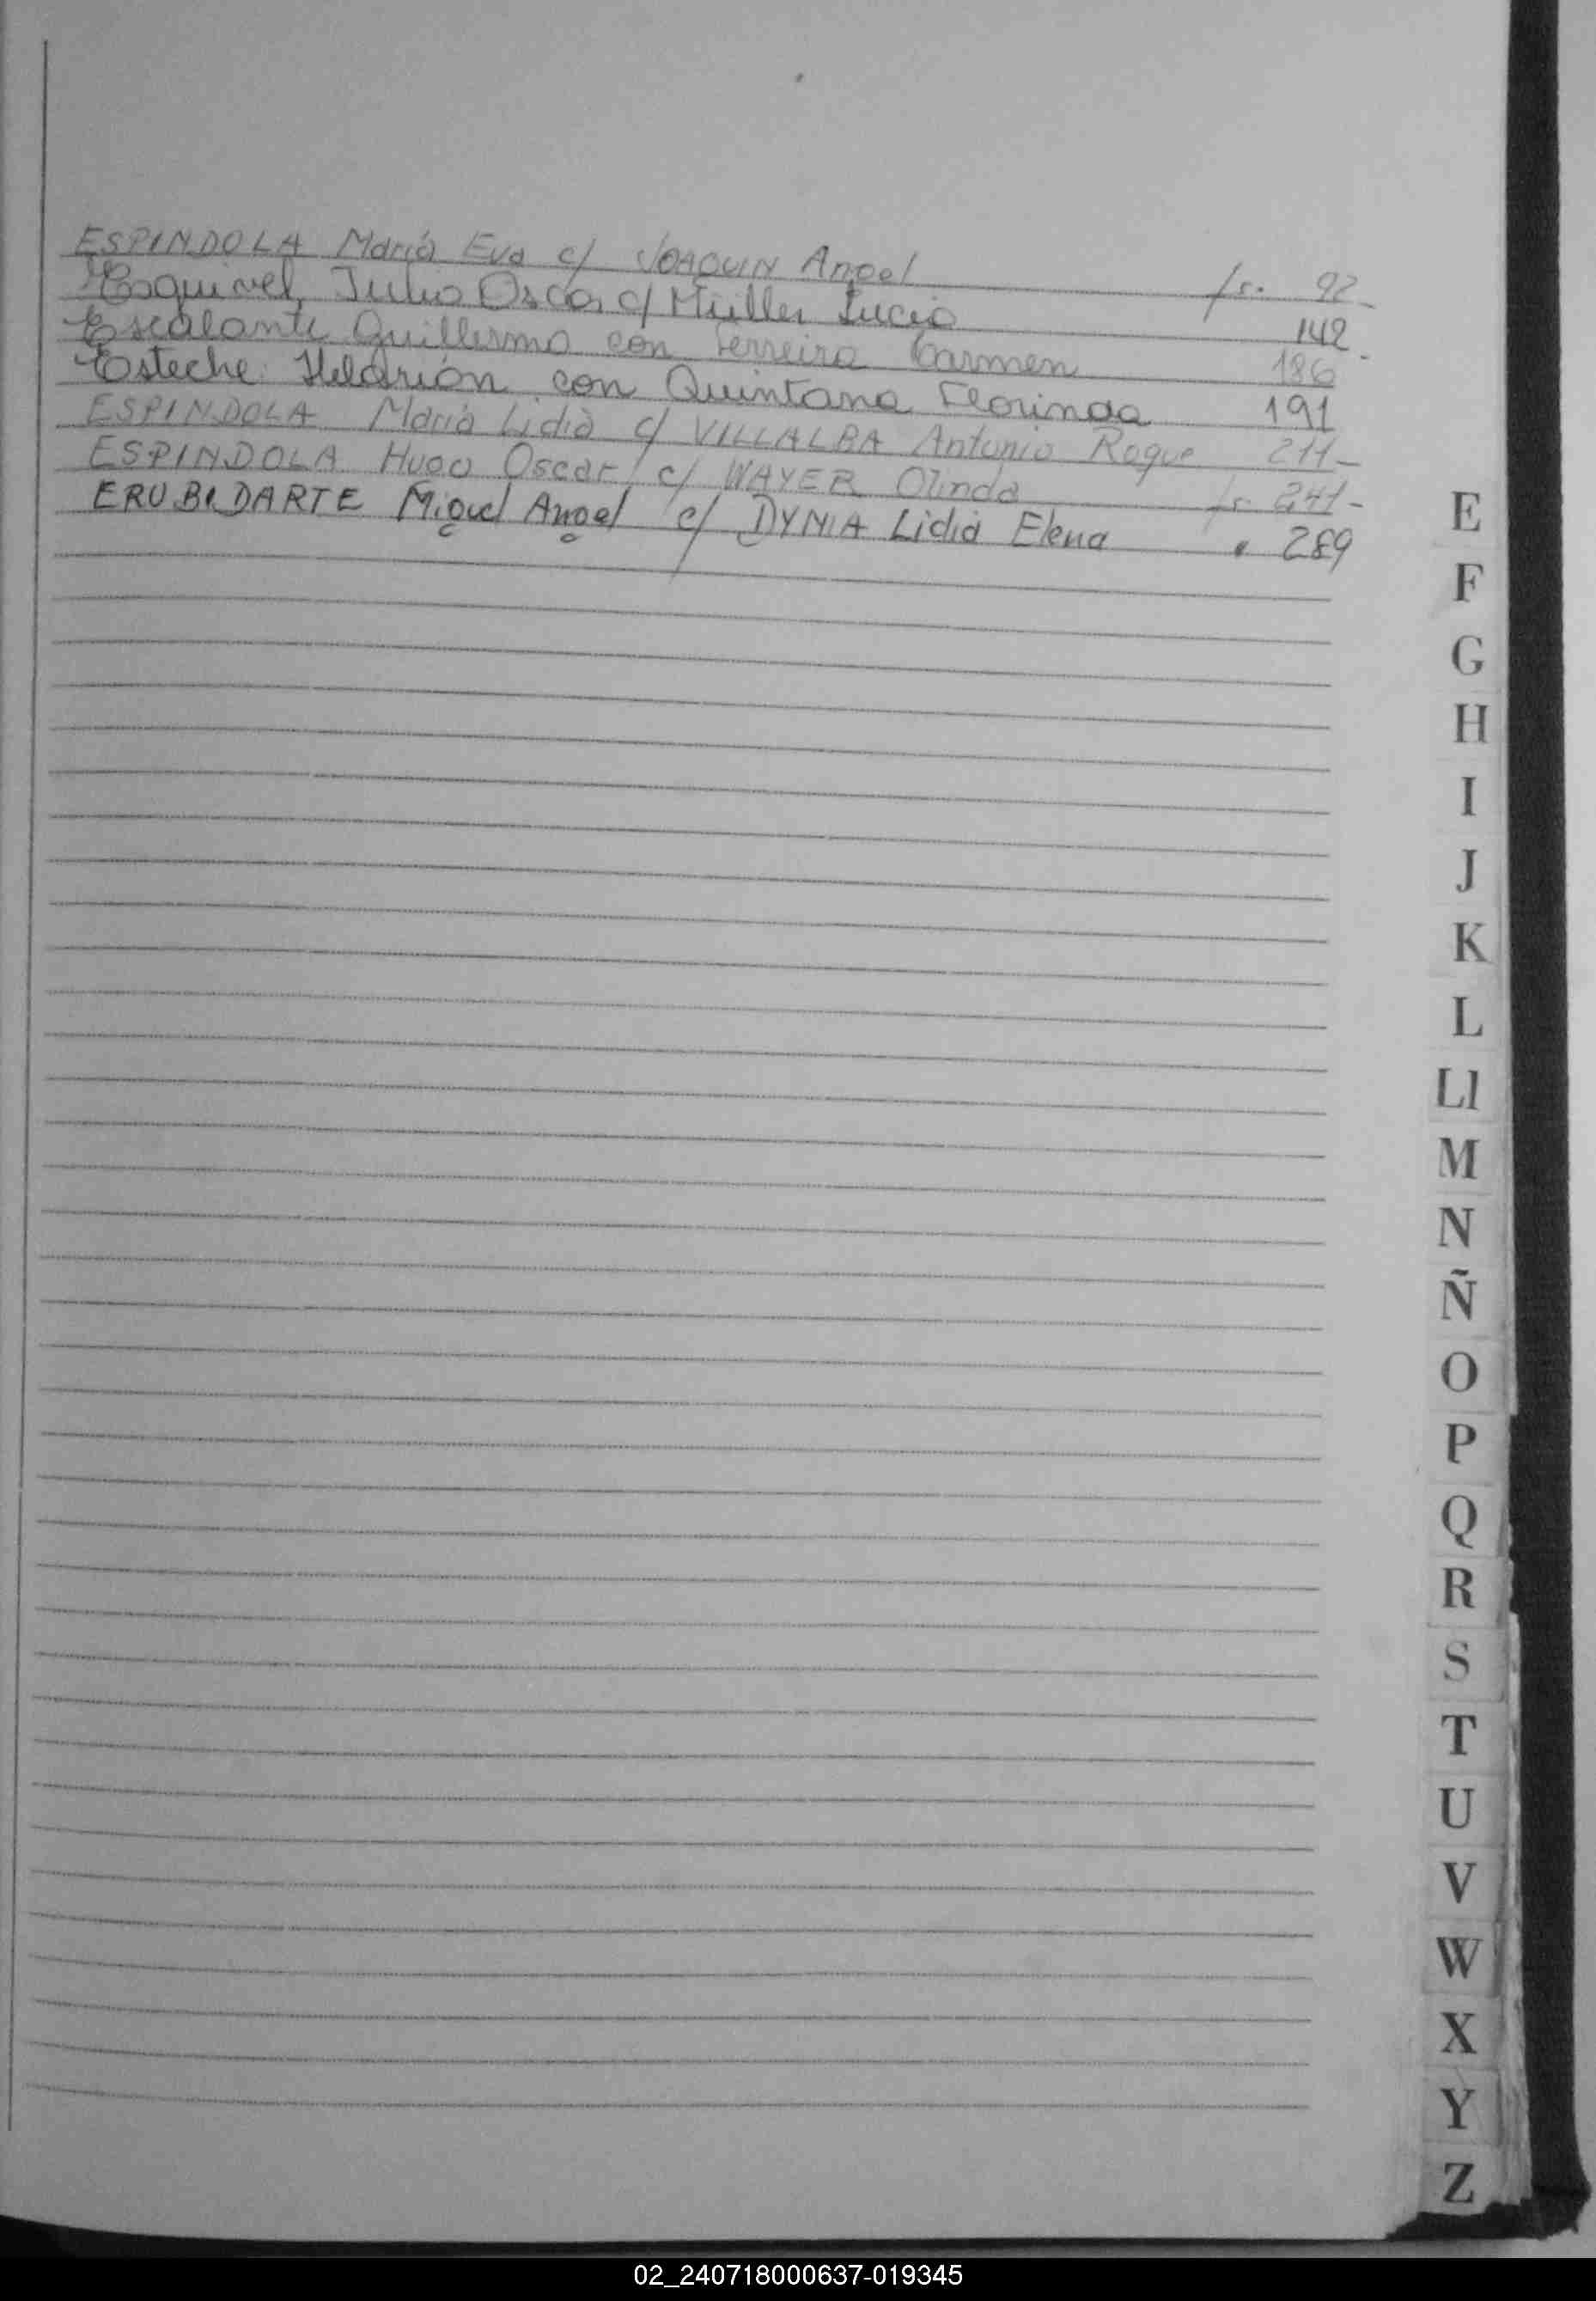 ESPINDOLA María Eva c/ JOAQUIN Angel fs. 92-
Esquivel, Julio Oscar c/ Müller Lucia 142
Escalante Guillermo con Ferreira Carmen 186-
Esteche Heldrión con Quintana Florinda 191
ESPINDOLA María Lidia c/ VILLALBA Antonio Roque 211-
ESPINDOLA Hugo Oscar c/ WAYER Olinda fs. 241-
ERUBIDARTE Miguel Angel c/ DYNIA Lidia Elena " 289
E
F
G
H
I
J
K
L
Ll
M
N
Ñ
O
P
Q
R
S
T
U
V
W
X
Y
Z
02_240718000637-019345